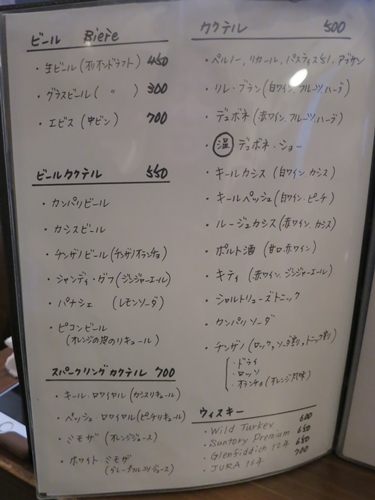 ビール Biere
・生ビール(オリオンドラフト) 450
・グラスビール( 〃 ) 300
・エビス (中ビン) 700
ビールカクテル 550
・カンパリビール
・カシスビール
・チンザノビール(チンザノオランチョ)
・シャンディ・ガフ(ジンジャーエール)
・パナシェ (レモンソーダ)
・ピコンビール
(オレンジの皮のリキュール)
スパークリングカクテル 700
・キール・ロワイヤル(カシスリキュール)
・ペッシェ・ロワイヤル(ピーチリキュール)
・ミモザ (オレンジジュース)
・ホワイト・ミモザ
(グレープフルーツジュース)
カクテル 500
・ペルノー, リカール, パスティス51, アブサン
・リレ・ブラン(白ワイン,フルーツ,ハーブ)
・デュボネ (赤ワイン,フルーツ,ハーブ)
・温 デュボネ・ショー
・キールカシス (白ワイン,カシス)
・キールペッシュ(白ワイン・ピーチ)
・ルージュカシス(赤ワイン,カシス)
・ポルト酒 (甘口赤ワイン)
・キティ (赤ワイン,ジンジャーエール)
・シャルトリューズトニック
・カンパリソーダ
・チンザノ (ロック,ソーダ割り,トニック割り)
・ドライ
・ロッソ
・オランチョ(オレンジ風味)
ウィスキー
・Wild Turkey 600
・Suntory Premium 650
・Glenfiddich 12年 650
・JURA 700